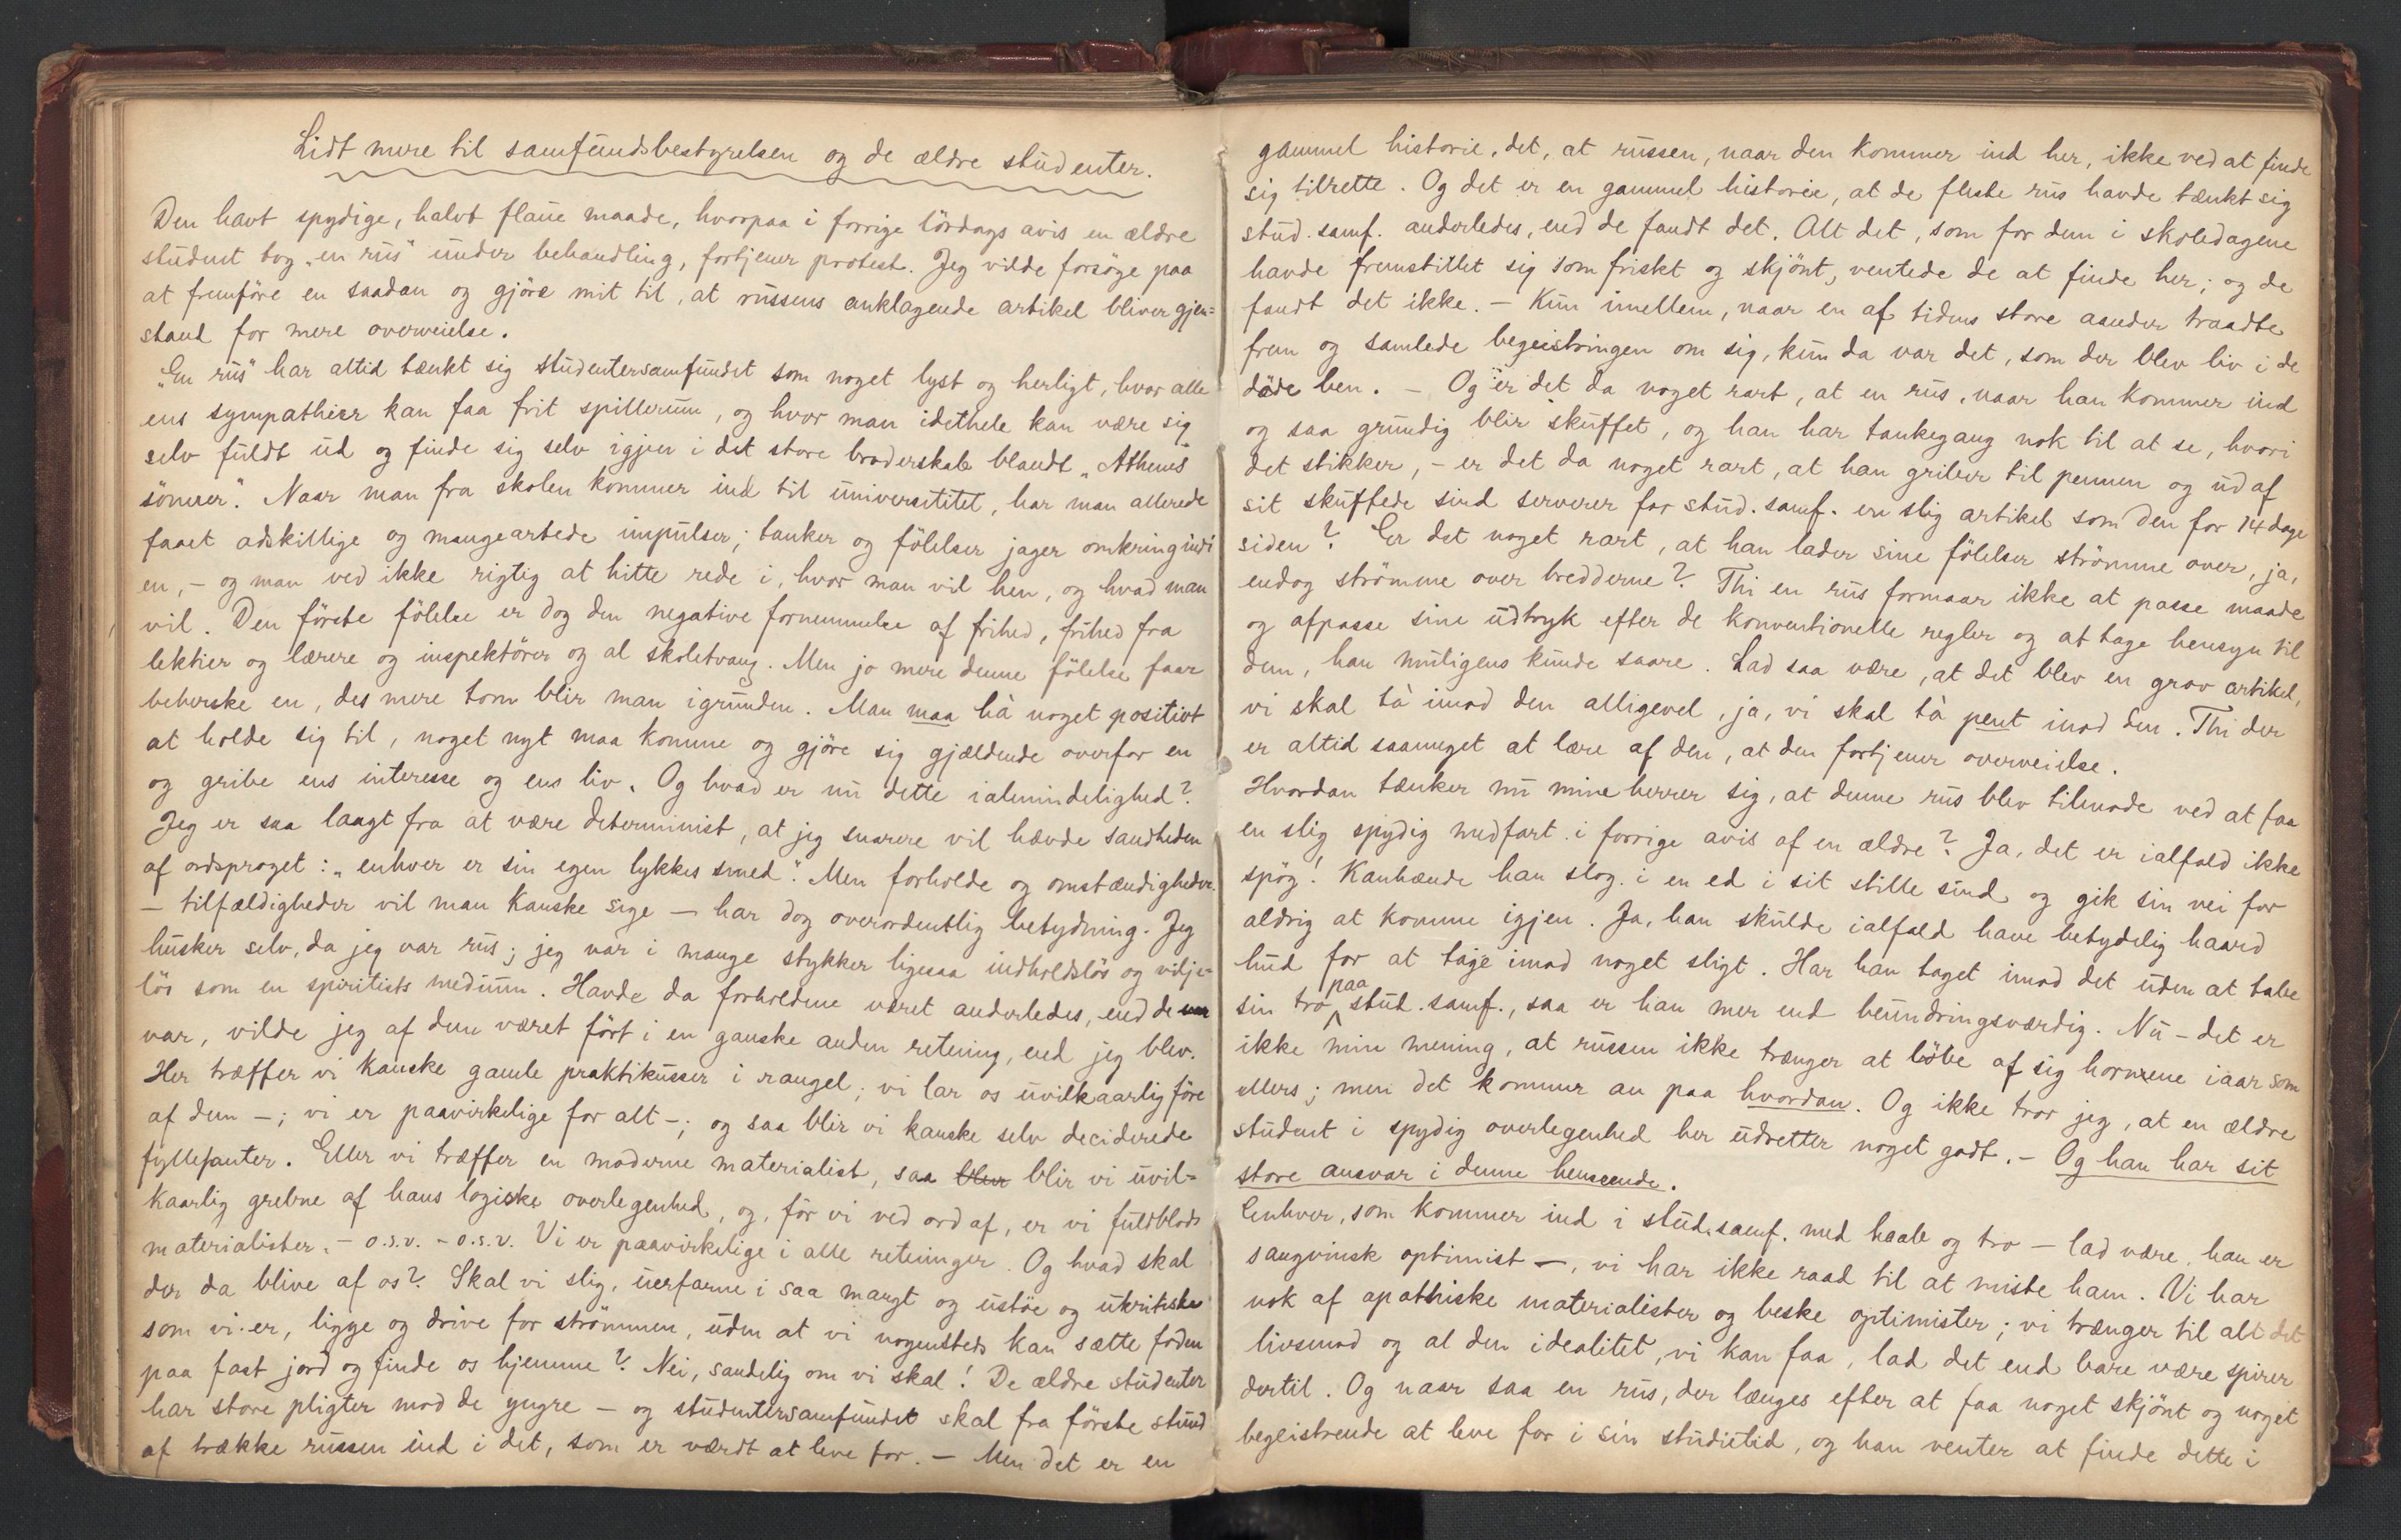 Lidt mere til samfundsbestyrelsen og de ældre studenter.
Den havt spydige, halvt flaue maade, hvorpaa i forrige lördags avis en ældre
student tog „en rus" under behandling, fortjener protest. Jeg vilde forsöge paa
at fremföre en saadan og gjöre mit til, at russens anklagende artikel bliver gjen=
stand for mere overveielse.
„En rus" har altid tænkt sig studentersamfundet som noget lyst og herligt, hvor alle
ens sympathier kan faa frit spillerum, og hvor man idethele kan være sig
selv fuldt ud og finde sig selv igjen i det store broderskab blandt „Athenes
sönner". Naar man fra skolen kommer ind til universitetet, har man allerede
faaet adskillige og mangeartede impulser; tanker og fölelser jager omkring indi
en, – og man ved ikke rigtig at hitte rede i, hvor man vil hen, og hvad man
vil. Den förste fölelse er dog den negative fornemmelse af frihed, frihed fra
lektier og lærere og inspektörer og al skoletvang. Men jo mere denne fölelse faar
beherske en, des mere tom blir man igrunden. Man maa hà noget positivt
at holde sig til, noget nyt maa komme og gjöre sig gjældende overfor en
og gribe ens interesse og ens liv. Og hvad er nu dette ialmindelighed?
Jeg er saa langt fra at være determinist, at jeg snarere vil hævde sandheden
af ordsproget: „enhver er sin egen lykkes smed". Men forholde og omstændigheder
– tilfældigheder vil man kanske sige – har dog overordentlig betydning. Jeg
husker selv, da jeg var rus; jeg var i mange stykker ligesaa indholdslös og vilje=
lös som en spiritists medium. Havde da forholdene været anderledes, end de
var, vilde jeg af dem været fört i en ganske anden retning, end jeg blev.
Her træffer vi kanske gamle praktikusser i rangel; vi lar os uvilkaarlig före
af dem –; vi er paavirkelige for alt –; og saa blir vi kanske selv deciderede
fyllefanter. Eller vi træffer en moderne materialist, saa blir blir vi uvil=
kaarlig grebne af hans logiske overlegenhed, og, för vi ved ord af, er vi fuldblods
materialister. – o.s.v. – o.s.v. Vi er paavirkelige i alle retninger. Og hvad skal
der da blive af os? Skal vi slig, uerfarne i saa mangt og ustöe og ukritiske
som vi er, ligge og drive for strömmen, uden at vi nogensteds kan sætte foden
paa fast jord og finde os hjemme? Nei, sandelig om vi skal! De ældre studenter
har store pligter mod de yngre – og studentersamfundet skal fra förste stund
af trække russen ind i det, som er værdt at leve for. – Men det er en
gammel historie, det, at russen, naar den kommer ind her, ikke ved at finde
sig tilrette. Og det er en gammel historie, at de fleste rus havde tænkt sig
stud. samf. anderledes, end de fandt det. Alt det, som for dem i skoledagene
havde fremstillet sig som friskt og skjönt, ventede de at finde her; og de
fandt det ikke. – Kun imellem, naar en af tidens store aander traadte
frem og samlede begeistringen om sig, kun da var det, som der blev liv i de
döde ben. – Og er det da noget rart, at en rus, naar han kommer ind
og saa grundig blir skuffet, og han har tankegang nok til at se, hvori
det stikker, – er det da noget rart, at han griber til pennen og ud af
sit skuffede sind serverer for stud. samf. en slig artikel som den for 14 dage
siden? Er det noget rart, at han lader sine fölelser strömme over, ja,
endog strömme over bredderne? Thi en rus formaar ikke at passe maade
og afpasse sine udtryk efter de konventionelle regler og at tage hensyn til
dem, han muligens kunde saare. Lad saa være, at det blev en grov artikel,
vi skal tà imod den alligevel, ja, vi skal tà pent imod den. Thi der
er altid saameget at lære af den, at den fortjener overveielse.
Hvordan tænker nu mine herrer sig, at denne rus blev tilmode ved at faa
en slig spydig medfart i forrige avis af en ældre? Ja, det er ialfald ikke
spög! Kanhænde han slog i en ed i sit stille sind og gik sin vei for
aldrig at komme igjen. Ja, han skulde ialfald have betydelig haard
hud for at tage imod noget sligt. Har han taget imod det uden at tabe
sin tro paa stud. samf., saa er han mer end beundringsværdig. Nu – det er
ikke min mening, at russen ikke trænger at löbe af sig hornene iaar som
ellers; men det kommer an paa hvordan. Og ikke tror jeg, at en ældre
student i spydig overlegenhed her udretter noget godt. – Og han har sit
store ansvar i denne henseende.
Enhver, som kommer ind i stud. samf. med haab og tro – lad være, han er
sangvinsk optimist –, vi har ikke raad til at miste ham. Vi har
nok af apathiske materialister og beske optimister; vi trænger til alt det
livsmod og al den idealitet, vi kan faa, lad det end bare være spirer
dertil. Og naar saa en rus, der længes efter at faa noget skjönt og noget
begeistrende at leve for i sin studietid, og han venter at finde dette i